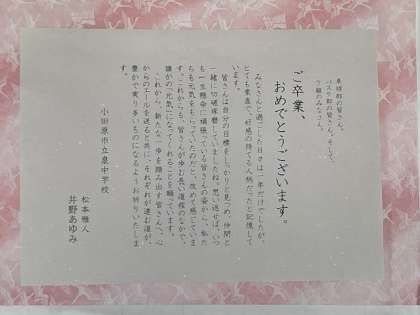 卓球部の皆さん、
バスケ部の皆さん、そして、
9組のみなさん。
ご卒業、
おめでとうございます。
みなさんと過ごした日々は一年だけでしたが、
とても素直で、好感の持てる人柄だったと記憶して
います。
皆さんは自分の目標をしっかりと見つめ、仲間と
一緒に切磋琢磨していましたね。思い返せば、いつ
も一生懸命に頑張っている皆さんの姿から、私た
ちも元気をもらっていたのだと、改めて感じていま
す。これからも、皆さんが歩む長い道程のなかで、
誰かの「元気」になってくれることを願っています。
これから、新たな一歩を踏み出す皆さんへ、心
からのエールを送ると共に、それぞれが進む道が、
豊かで実り多いものになるようお祈りいたしま
す。
小田原市立泉中学校
松本雅人
井野あゆみ